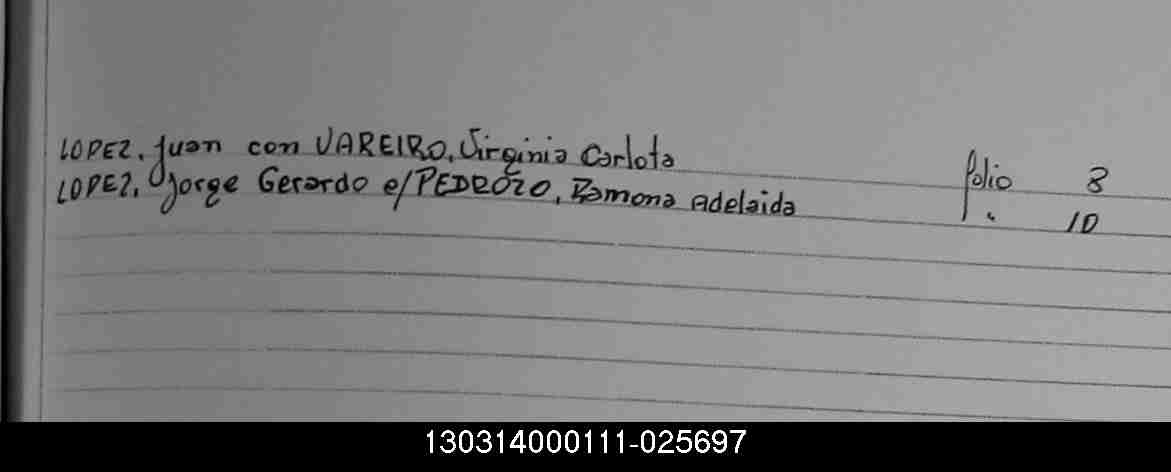 LOPEZ, Juan con VAREIRO, Virginia Carlota folio 8
LOPEZ, Jorge Gerardo c/PEDROZO, Ramona Adelaida " 10
130314000111-025697